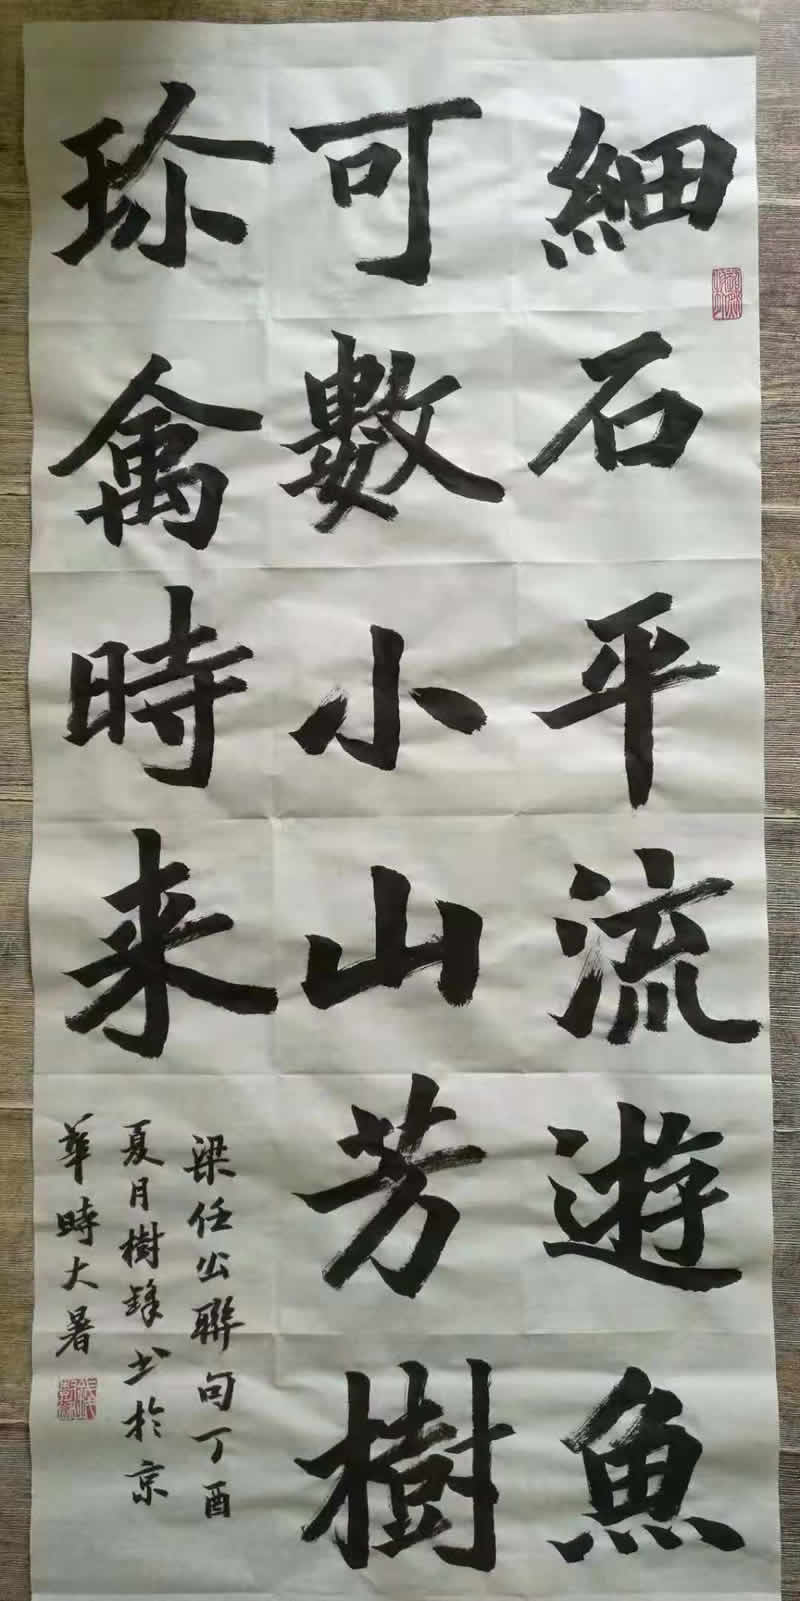 細石平流遊魚
可數小山芳樹
珎禽時来
梁任公聯句丁酉
夏月樹鋒书於京
華時大暑